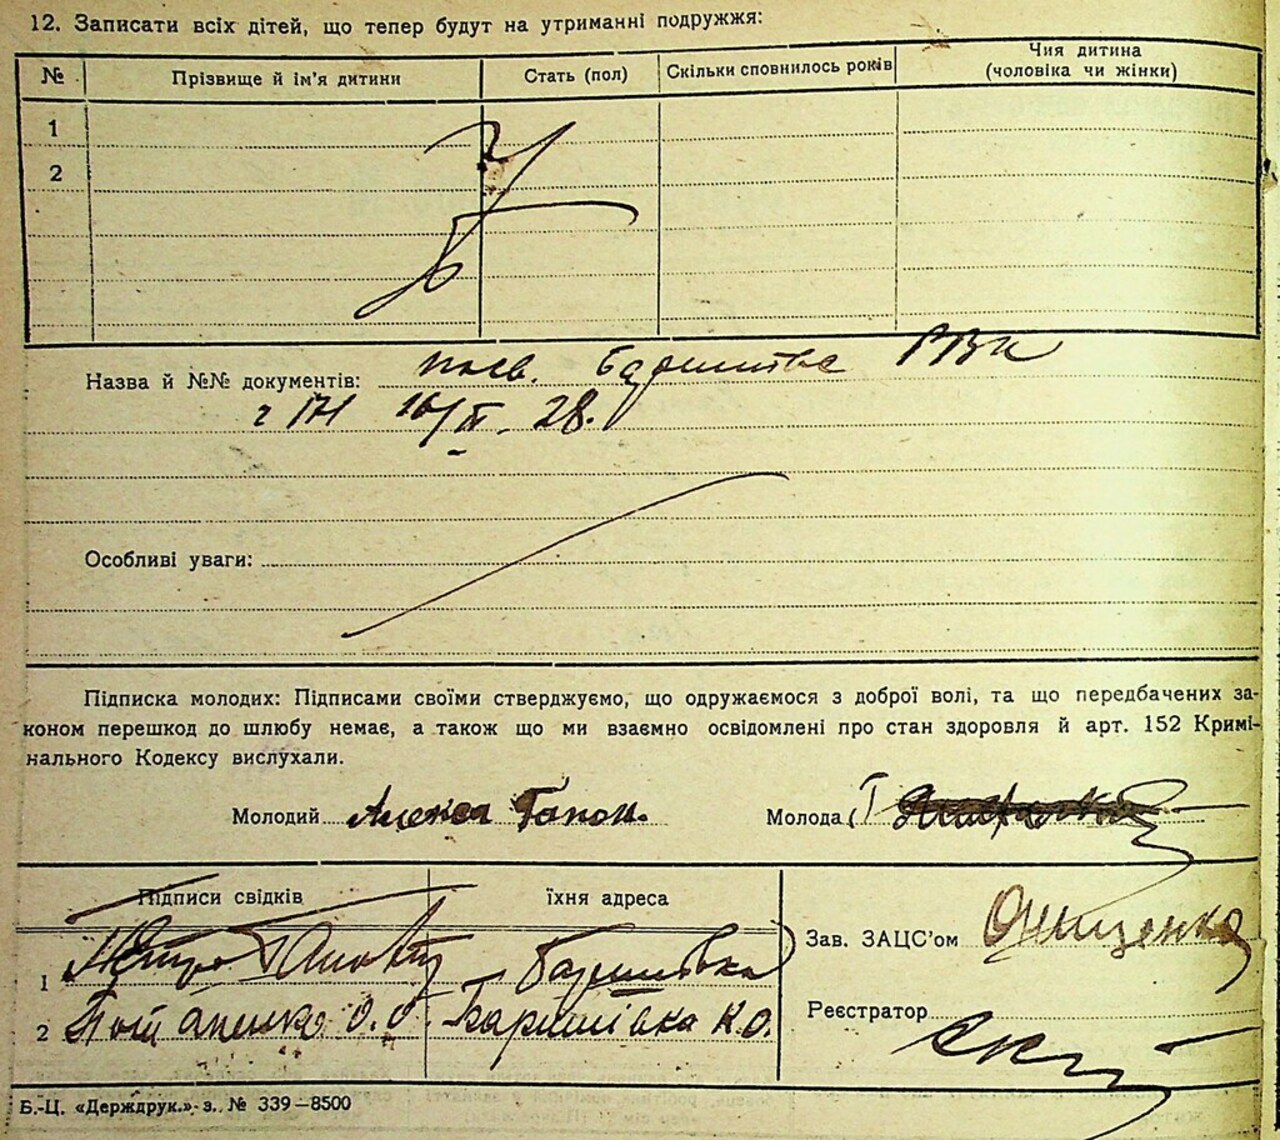 12. Записати всіх дітей, що тепер будут на утриманні подружжя:
№ Прізвище й ім'я дитини Стать (пол) Скільки сповнилось років Чия дитина (чоловіка чи жінки)
1
2
Назва й №№ документів: посв. Баришівськ РВК
16/II. 28.
Особливі уваги:
Підписка молодих: Підписами своїми стверджуємо, що одружаємося з доброї волі, та що передбачених за-
коном перешкод до шлюбу немає, а також що ми взаємно освідомлені про стан здоровля й арт. 152 Кримі-
нального Кодексу вислухали.
Молодий Алекса Гапон. Молода
Підписи свідків їхня адреса
Зав. ЗАЦС'ом Онищенко
1 Петро Баришівка
2 Потапенко О. О. Баришівка К.О.
Реєстратор
Б.-Ц. «Держдрук.» з. № 339—8500